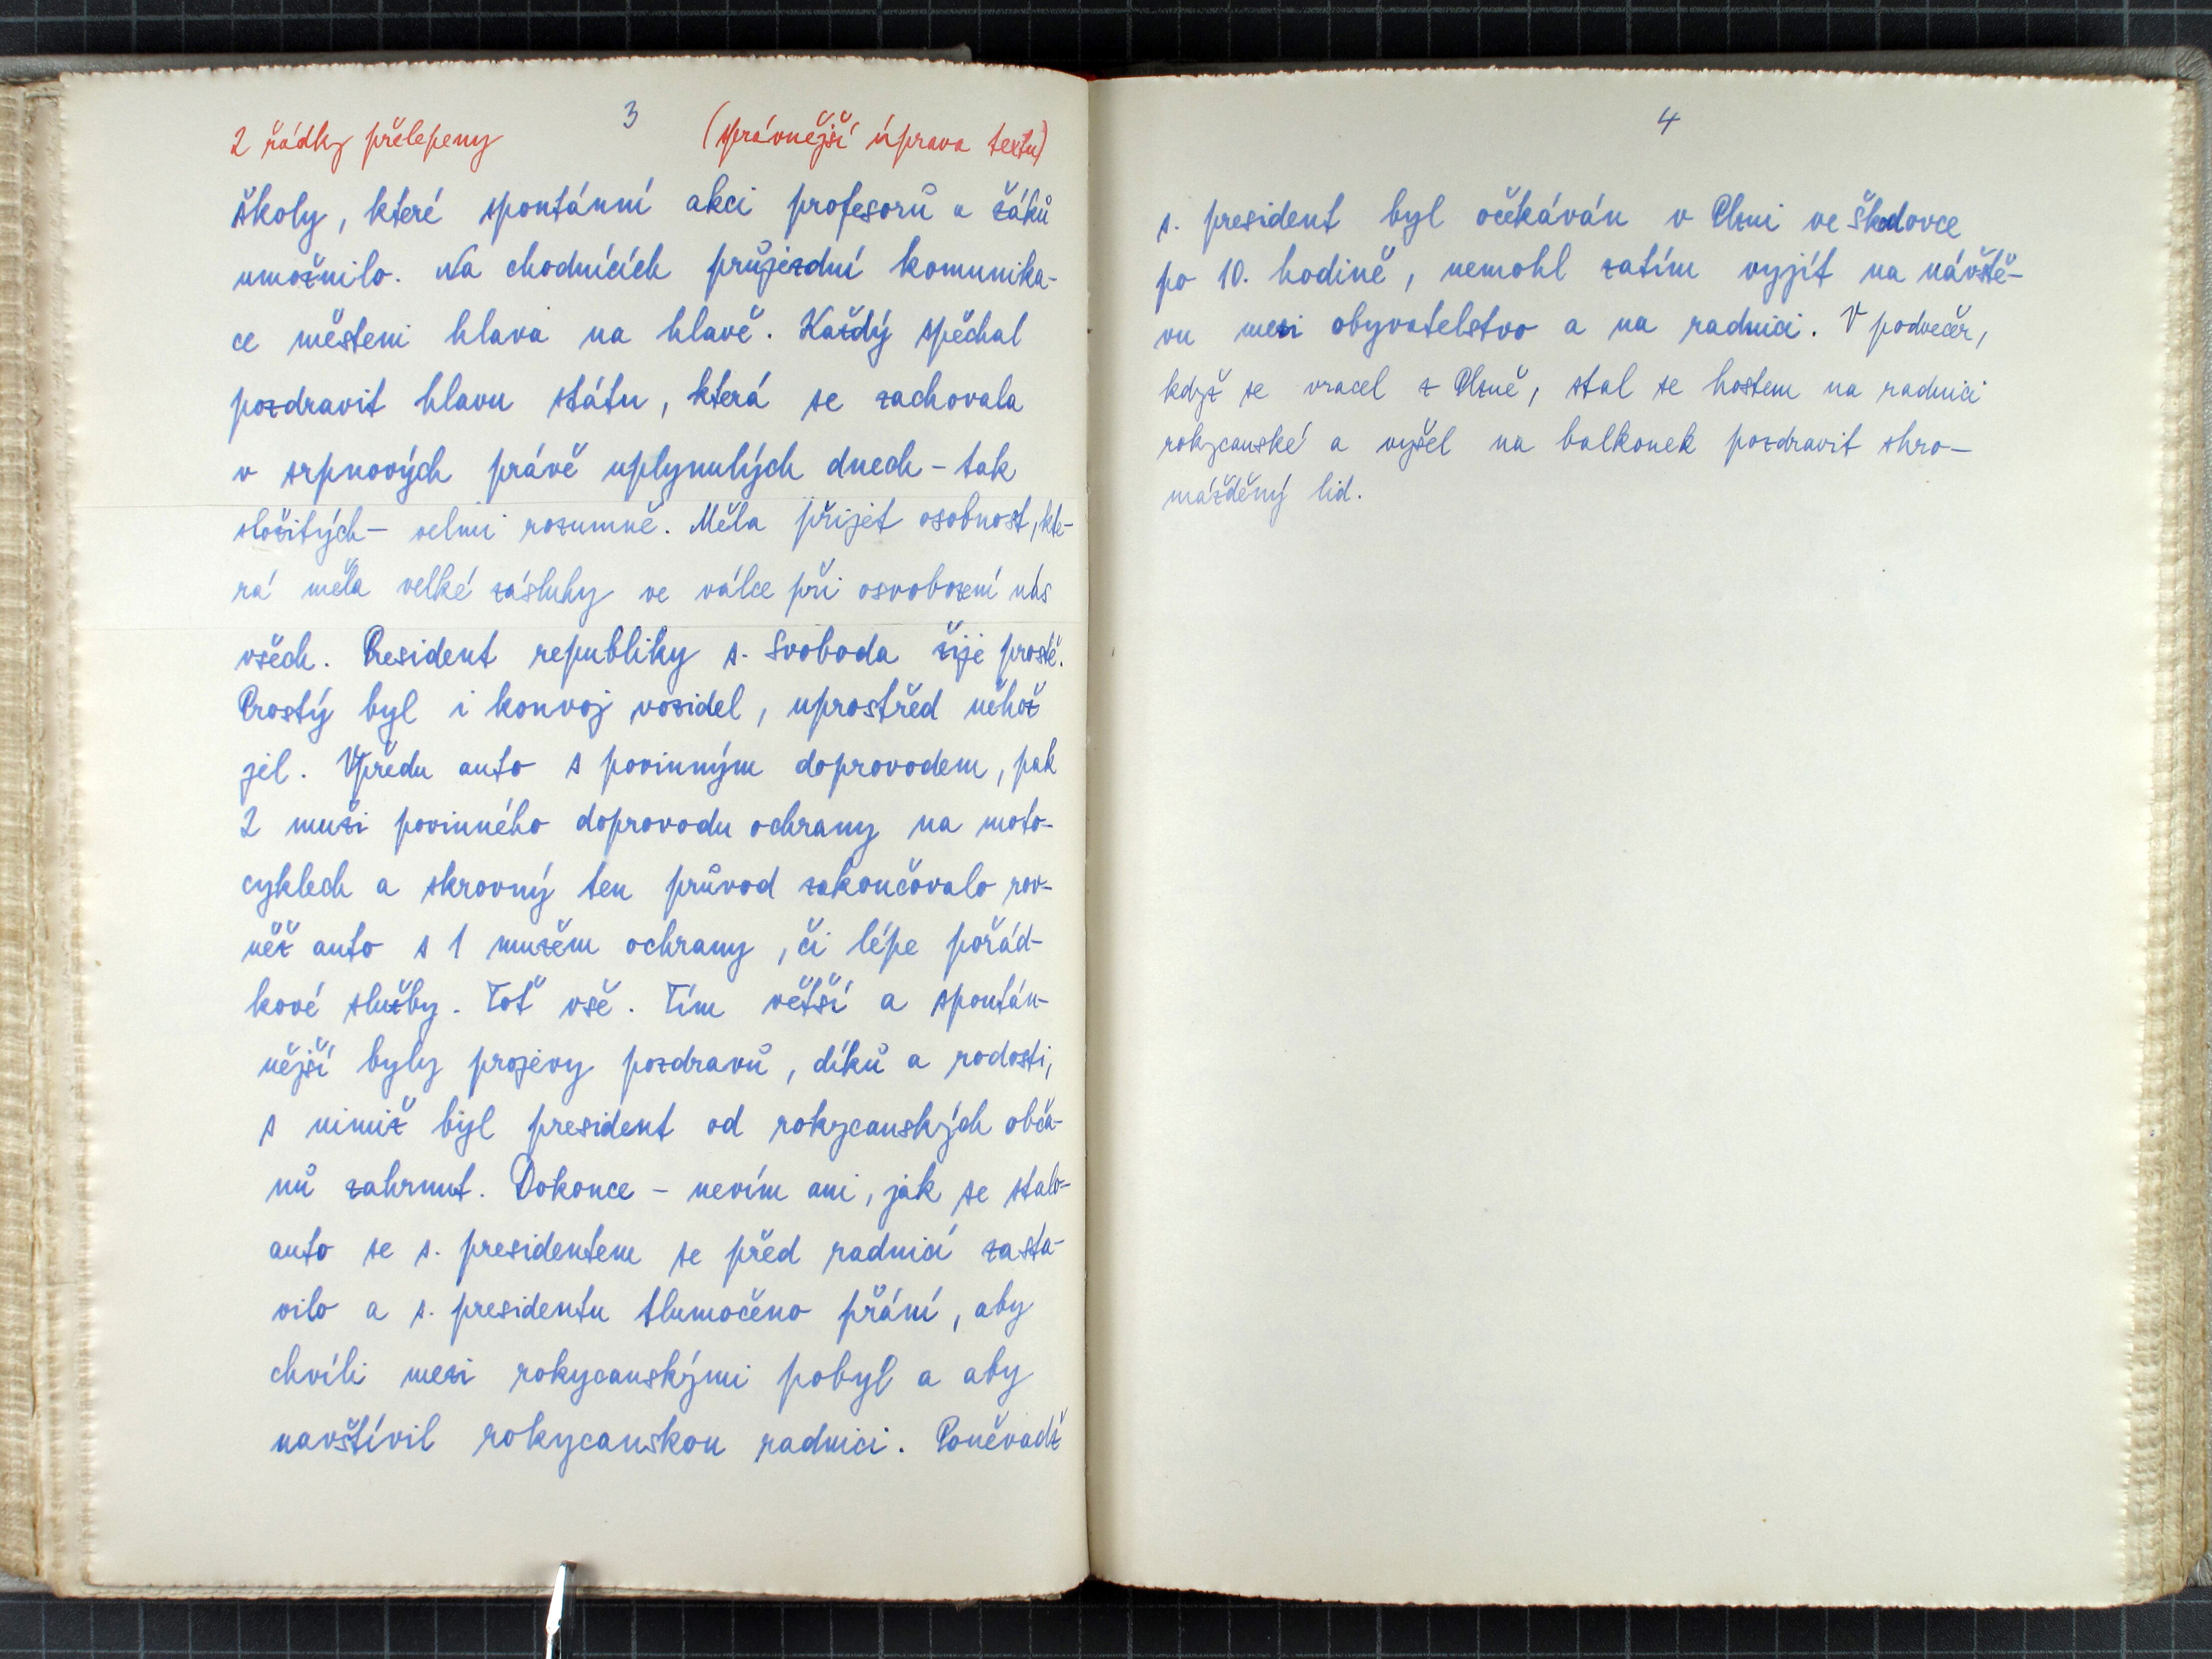 3
2 řádky přelepeny (správnější úprava textu)
školy, které spontánní akci profesorů a žáků
umožnilo. Na chodnících průjezdní komunika-
ce městem hlava na hlavě. Každý spěchal
pozdravit hlavu státu, která se zachovala
v srpnových právě uplynulých dnech - tak
složitých - velmi rozumně. Měla přijet osobnost, kte-
rá měla velké zásluhy ve válce při osvobození nás
všech. President republiky s. Svoboda žije prostě.
Prostý byl i konvoj vozidel, uprostřed něhož
jel. Vpředu auto s povinným doprovodem, pak
2 muži povinného doprovodu ochrany na moto-
cyklech a skrovný ten průvod zakončovalo rov-
něž auto s 1 mužem ochrany, či lépe pořád-
kové služby. Toť vše. Tím větší a spontán-
nější byly projevy pozdravů, díků a radosti,
s nimiž byl president od rokycanských obča-
nů zahrnut. Dokonce - nevím ani, jak se stalo -
auto se s. presidentem se před radnicí zasta-
vilo a s. presidentu tlumočeno přání, aby
chvíli mezi rokycanskými pobyl a aby
navštívil rokycanskou radnici. Poněvadž
4
s. president byl očekáván v Plzni ve Škodovce
po 10. hodině, nemohl zatím vyjít na návště-
vu mezi obyvatelstvo a na radnici. V podvečer,
když se vracel z Plzně, stal se hostem na radnici
rokycanské a vyšel na balkonek pozdravit shro-
mážděný lid.